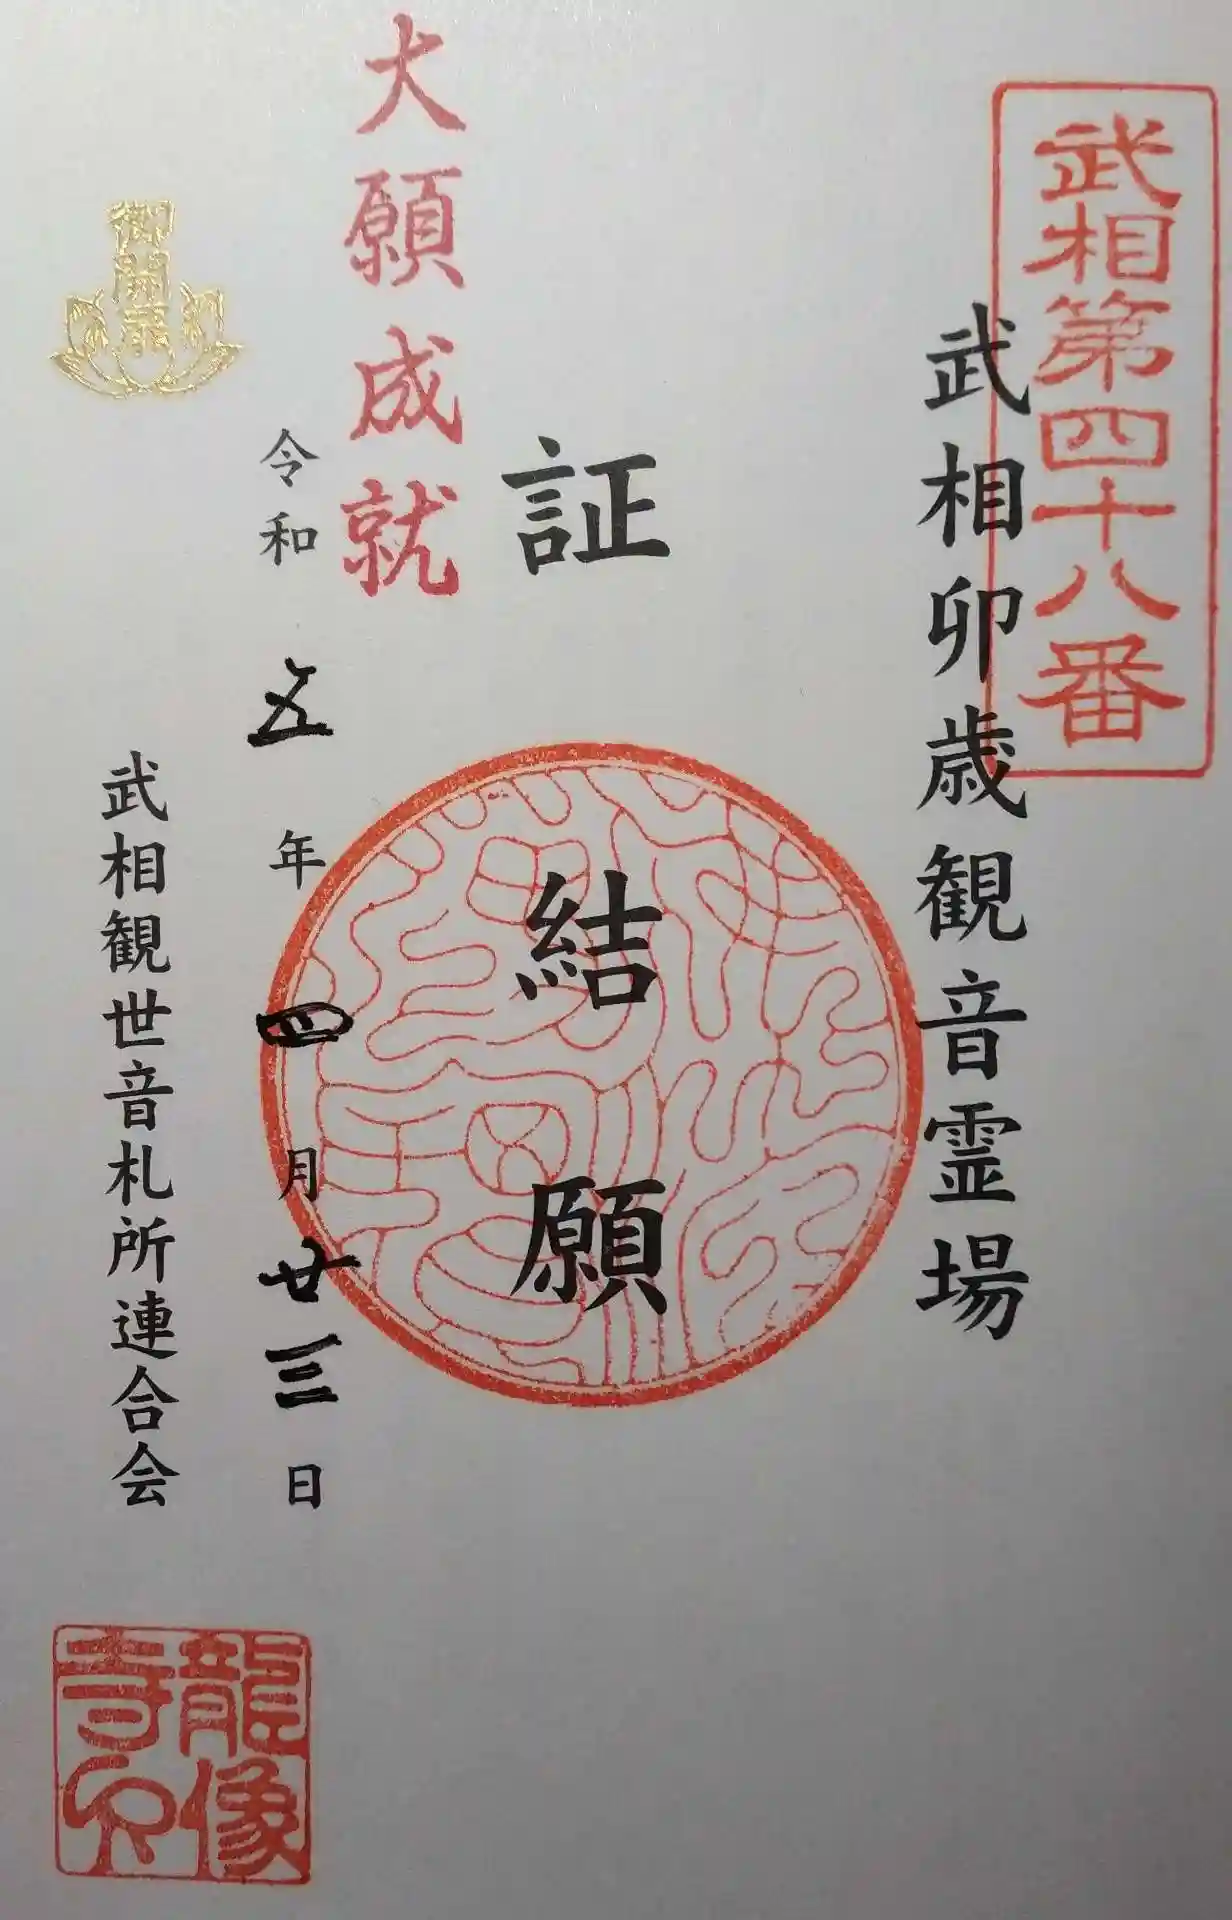 武相第四十八番
武相卯歳観音霊場
証
結願
大願成就
令和五年四月廿三日
御開扉
武相観世音札所連合会
龍像寺印